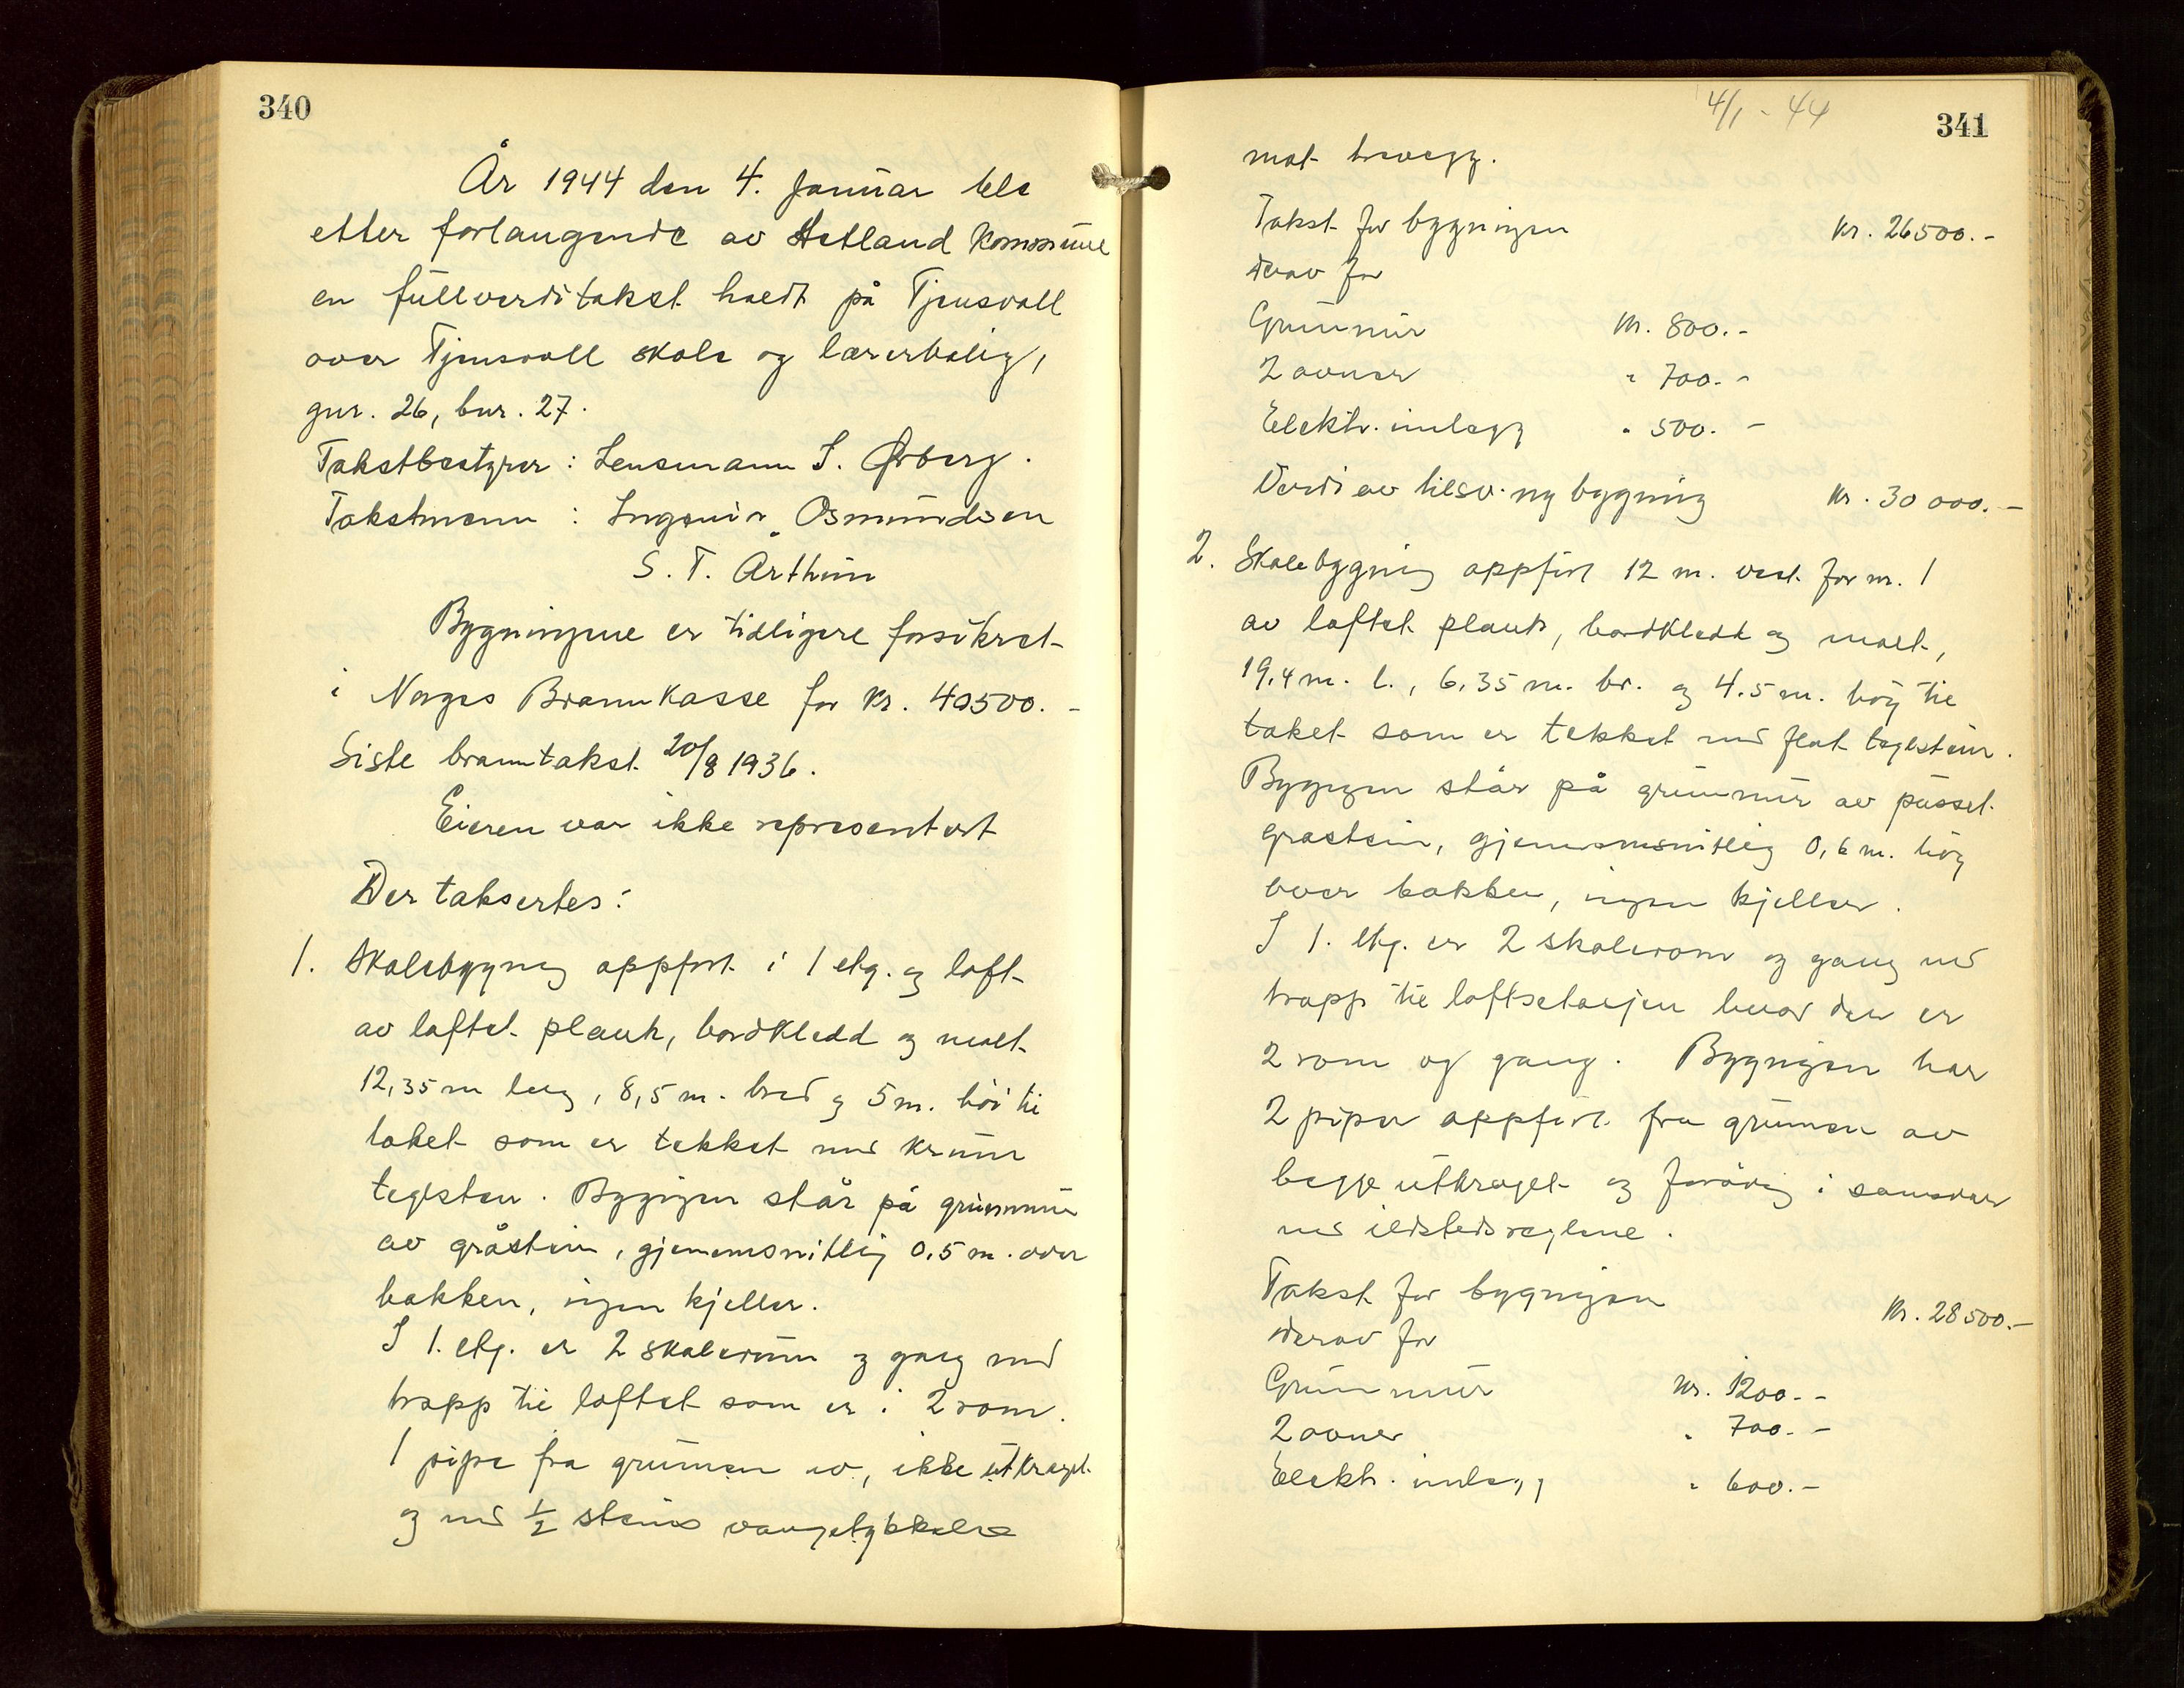 340
År 1944 den 4. Januar ble
etter forlangende av Hetland Kommune
en fullverditakst holdt på Tjensvoll
over Tjensvoll skole og lærerbolig,
gnr. 26, bnr. 27.
Takstbestyrer : Lensmann S. Ørberg.
Takstmenn : Ingeniør Osmundsen
S. T. Årthun
Bygningene er tidligere forsikret
i Norges Brannkasse for kr. 40500.-
Siste branntakst 20/8 1936.
Eieren var ikke representert
Der taksertes:
1. Skolebygning oppført i 1 etg. og loft
av laftet plank, bordkledd og malt
12,35 m lang, 8,5 m. bred og 5 m. høi til
taket som er tekket med krum
teglsten. Bygningen står på grunnmur
av gråstein, gjenemsnitlig 0.5 m. over
bakken, ingen kjeller.
I 1. etg. er 2 skolerum og gang med
trapp til loftet som er i 2 rom.
1 pipe fra grunnen av, ikke utkraget
og med 1/2 steins vangetykkelse
4/1 - 44
341
mot trevegg.
Takst for bygningen kr. 26500.-
derav for
Grunnmur kr. 800.-
2 ovner " 700.-
Elektr. innlegg " 500.-
Verdi av tilsv. ny bygning kr. 30 000.-
2. Skolebygning oppført 12 m. vest for nr. 1
av laftet plank, bordkledt og malt,
19,4 m. l., 6,35 m. br. og 4.5 m. høy til
taket som er tekket med flat teglstein.
Bygningen står på grunnmur av pusset
gråstein, gjennomsnitlig 0,6 m. høy
over bakken, ingen kjeller.
I 1. etg. er 2 skolerom og gang med
trapp til loftsetasjen hvor der er
2 rom og gang. Bygningen har
2 piper oppført fra grunnen av
begge utkraget og forøvrig i samsvar
med ildstedsreglene.
Takst for bygningen kr. 28500.-
derav for
Grunnmur kr. 1200.-
2 ovner " 700.-
Elektr. innlegg " 600.-